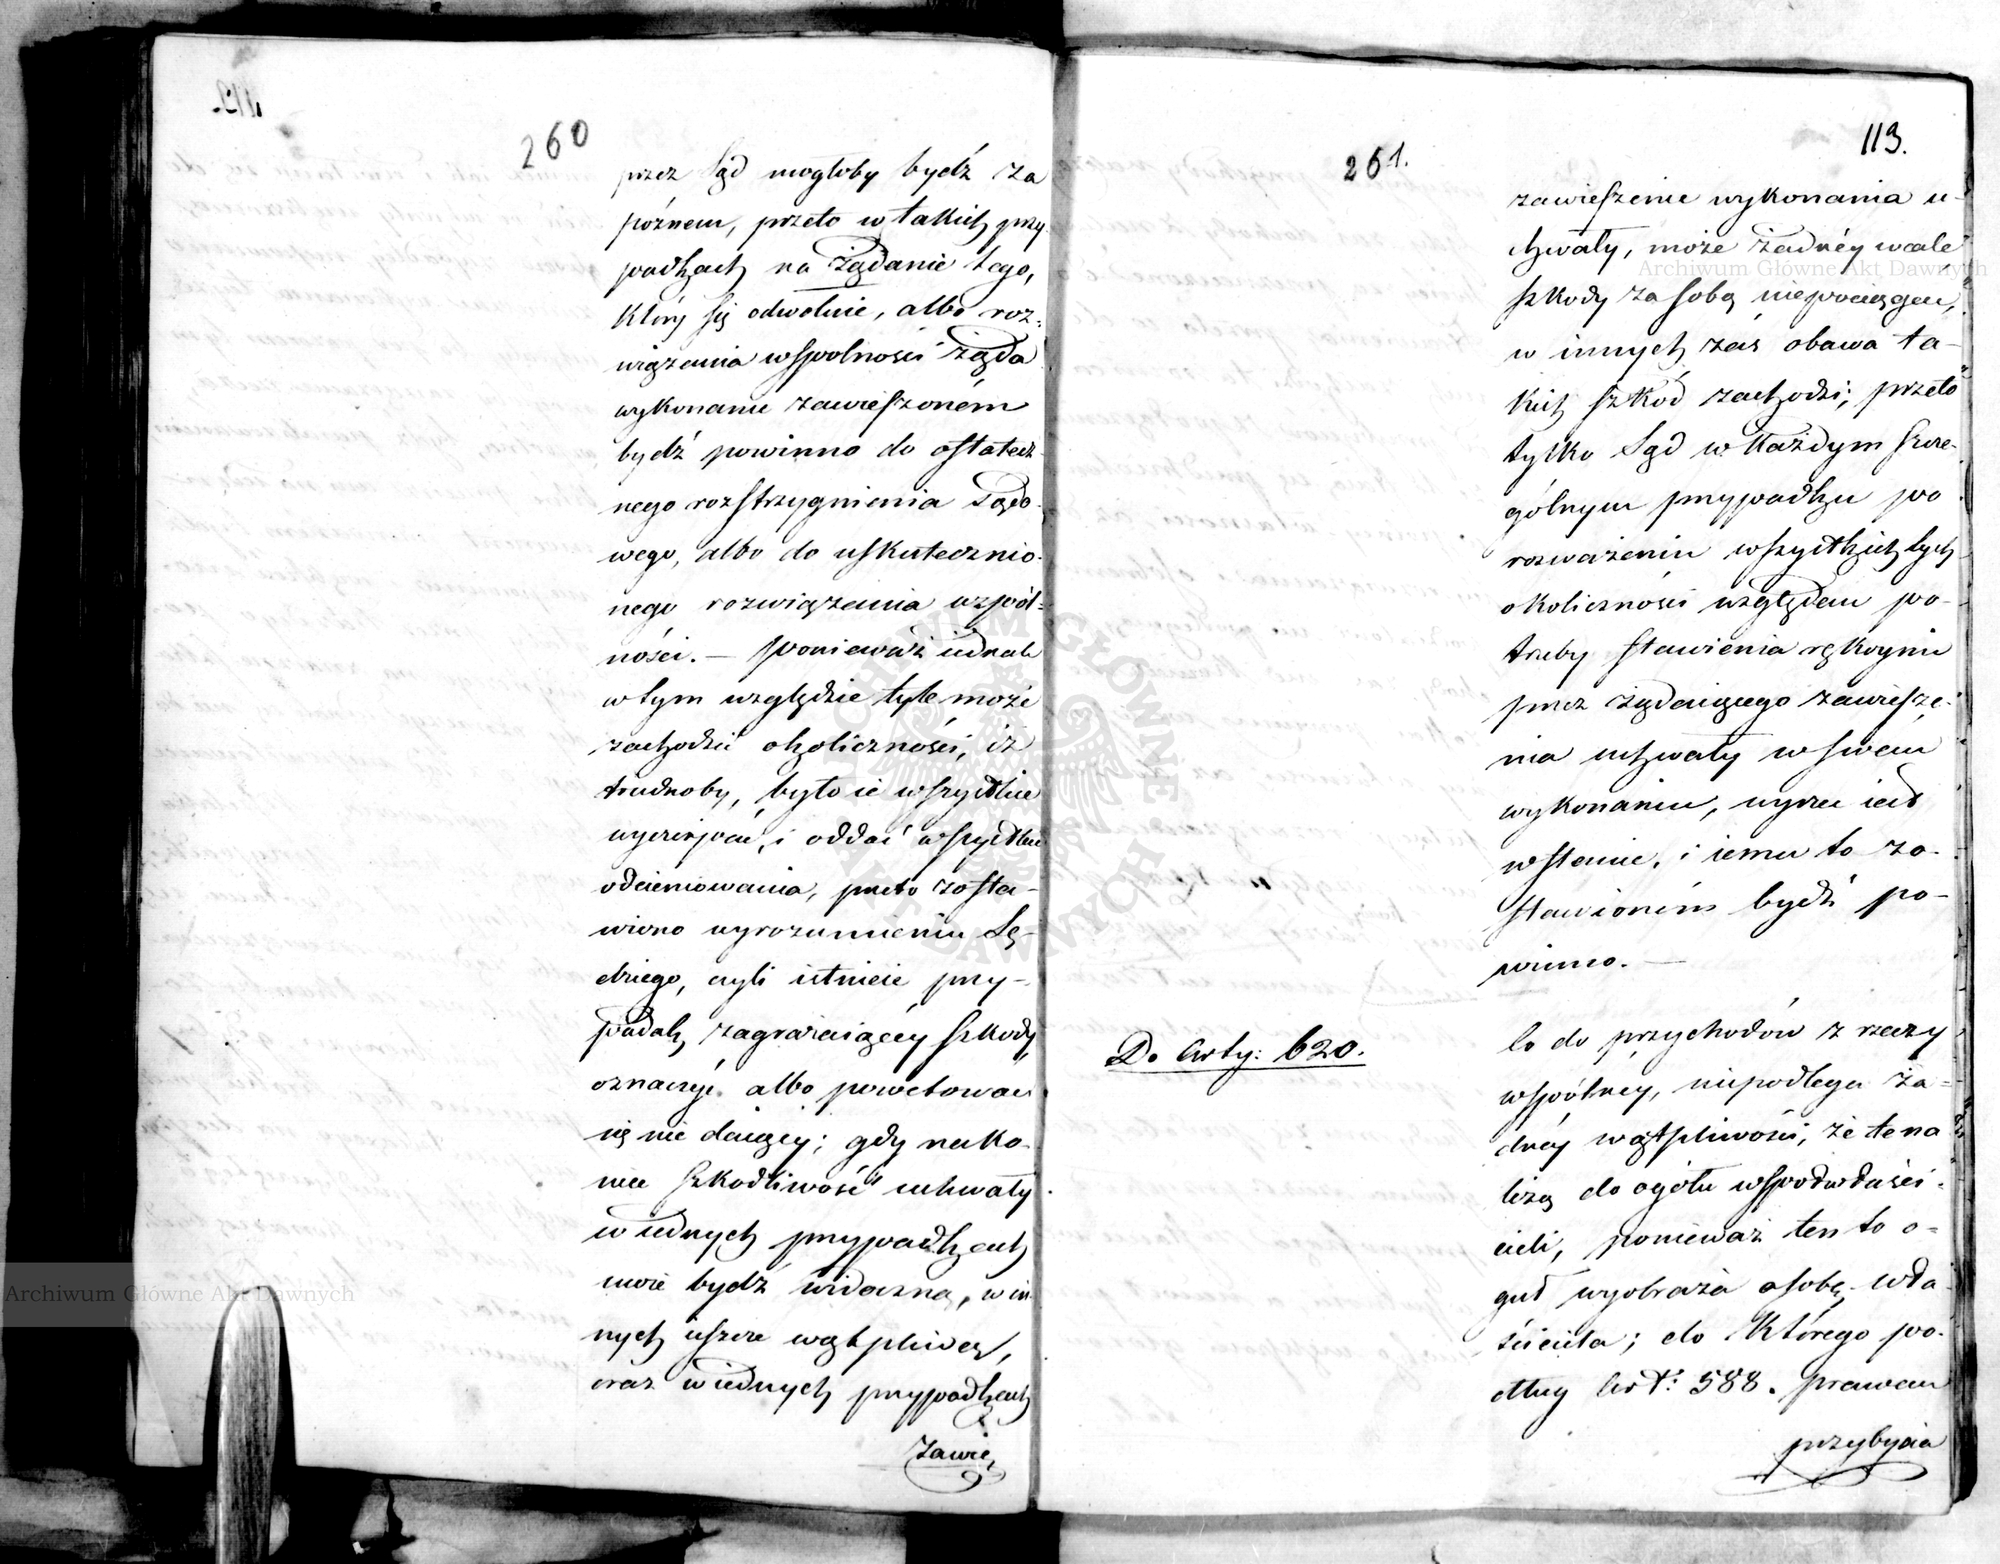 260
przez Sąd mogłoby bydź za
późnem, przeto w takich przy
padkach na żądanie tego,
który się odwołuie, albo roz-
wiązania wspolności żąda
wykonanie zawieszoném
bydź powinno do ostatecz
nego rozstrzygnienia Sądo-
wego, albo do uskutecznio-
nego rozwiązania wspól-
ności. — ponieważ iednak
w tym względzie tyle może
zachodzić okoliczności, iż
trudnoby, było ie wszystkie
wyczerpać, i oddać wszystkie
odcieniowania, przeto zosta-
wiono wyrozumieniu Sę-
dziego, czyli istnieie przy-
padek zagrażaiącéy szkody
oznaczyć albo powetować
się nie daiącéy; gdy nako-
niec szkodliwość uchwały
w iednych przypadkach
może bydź widoczną, w in
nych ieszcze wątpliwą,
oraz w iednych przypadkach
zawie
113.
261.
zawieszenie wykonania u-
chwały, może żadnéy wcale
szkody za sobą niepociągać,
w innych zaś obawa ta-
kich szkód zachodzi; przeto
tylko Sąd w każdym szcze-
gólnym przypadku po
rozważeniu wszystkich tych
okoliczności względem po-
trzeby stawienia rękoymi
przez żądaiącego zawiesze-
nia uchwały w swem
wykonaniu, wyrzec iest
w stanie, i iemu to zo-
stawioném bydź po-
winno. —
Do Arty: 620.
Co do przychodów z rzeczy
wspólnéy, niepodlega ża-
dnéy wątpliwości, że te na
leżą do ogółu wspołwłaści-
cieli, ponieważ ten to o-
guł wyobraża osobę wła-
ściciela; do którego po-
dług Art: 588. prawem
przybycia
Archiwum Główne Akt Dawnych
Archiwum Główne Akt Dawnych
ARCHIWUM GŁÓWNE AKT DAWNYCH